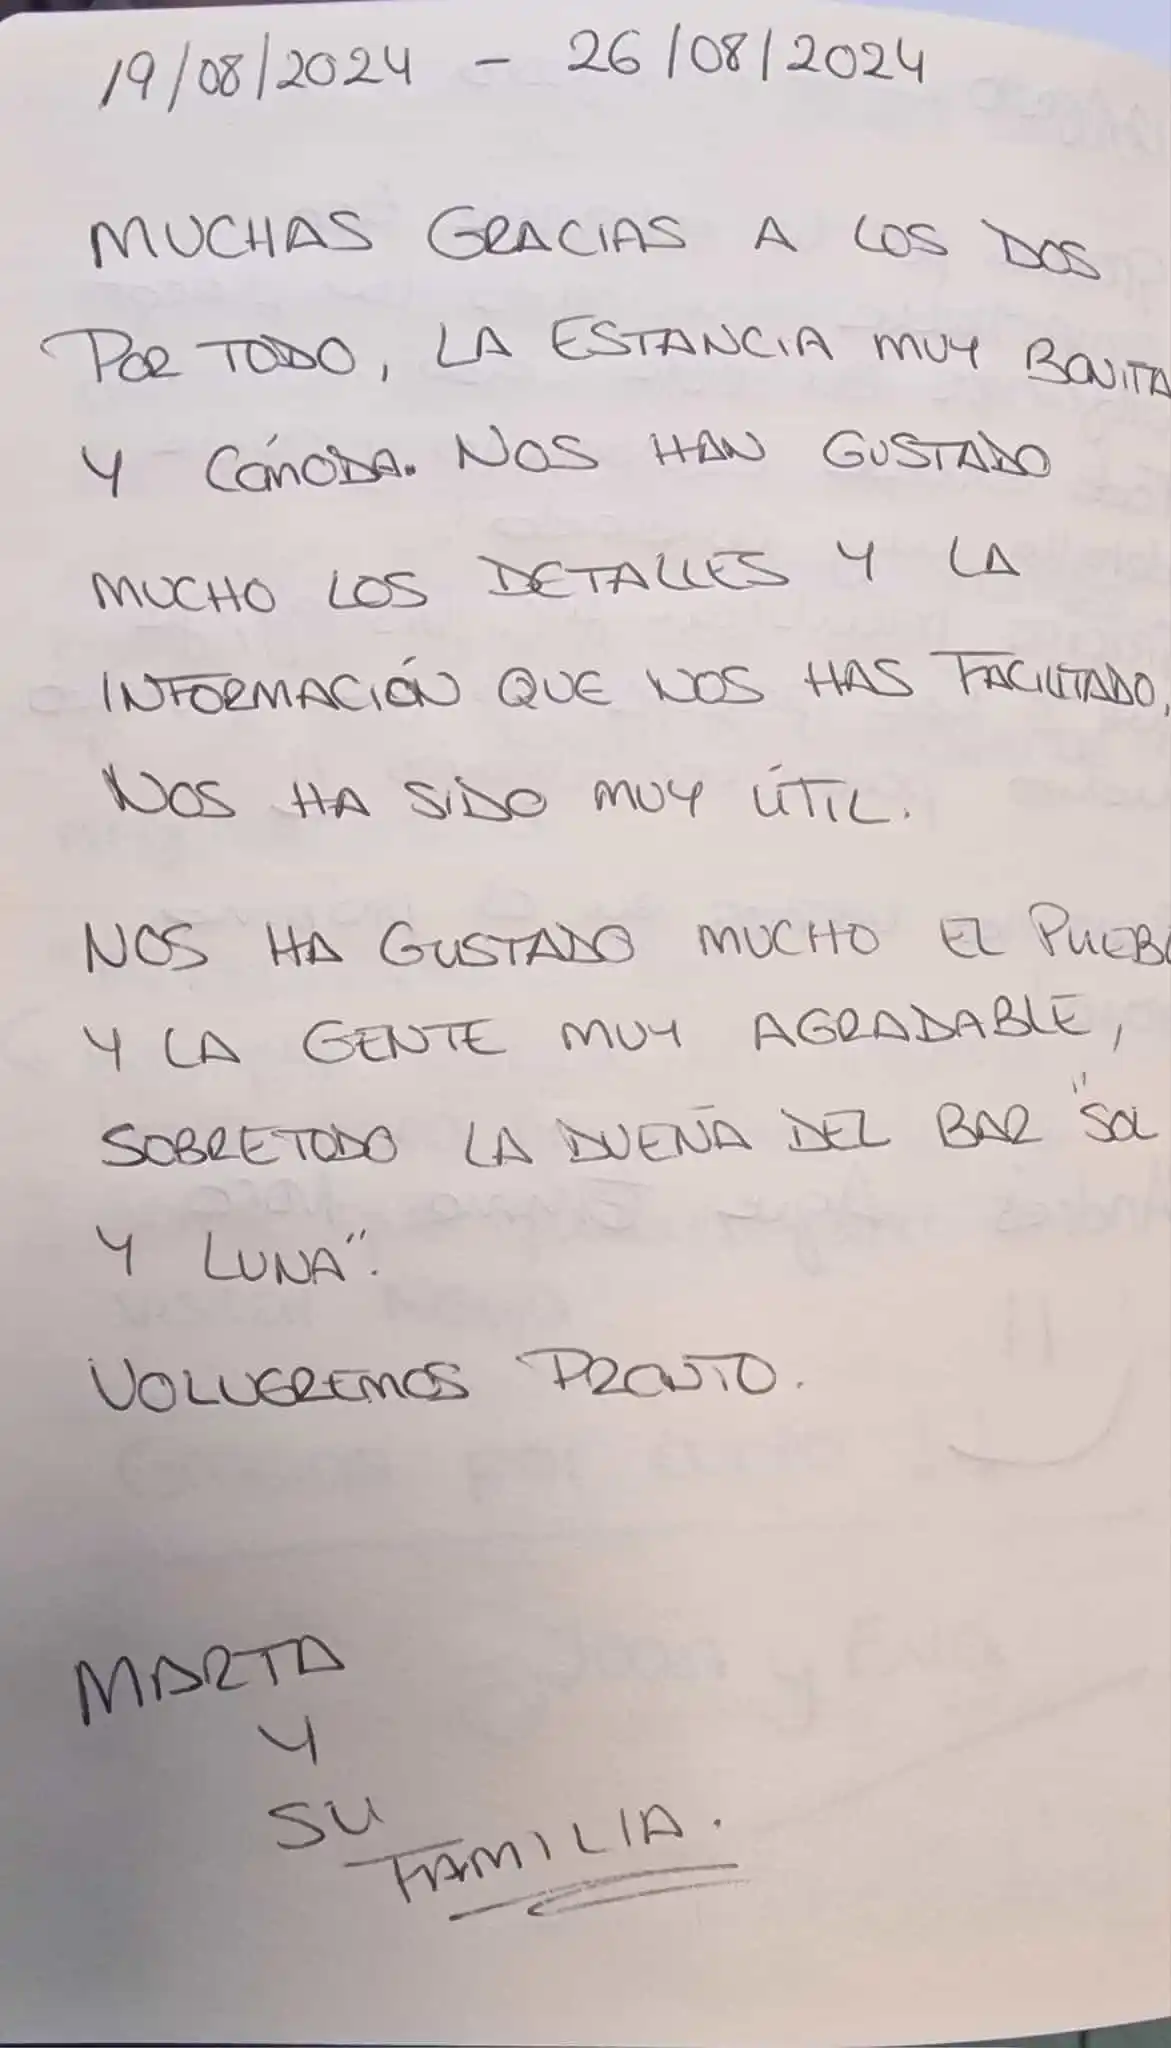 19/08/2024 - 26/08/2024
MUCHAS GRACIAS A LOS DOS
POR TODO, LA ESTANCIA MUY BONITA
Y CÓMODA. NOS HAN GUSTADO
MUCHO LOS DETALLES Y LA
INFORMACIÓN QUE NOS HAS FACILITADO,
NOS HA SIDO MUY ÚTIL.
NOS HA GUSTADO MUCHO EL PUEBL
Y LA GENTE MUY AGRADABLE,
SOBRETODO LA DUEÑA DEL BAR "SOL
Y LUNA".
VOLVEREMOS PRONTO.
MARTA
Y
SU
FAMILIA.